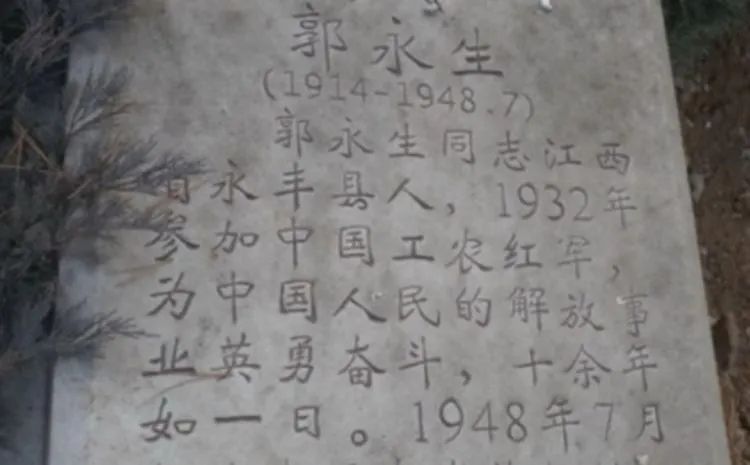 郭永生
(1914-1948.7)
郭永生同志江西
省永丰县人，1932年
参加中国工农红军，
为中国人民的解放事
业英勇奋斗，十余年
如一日。1948年7月